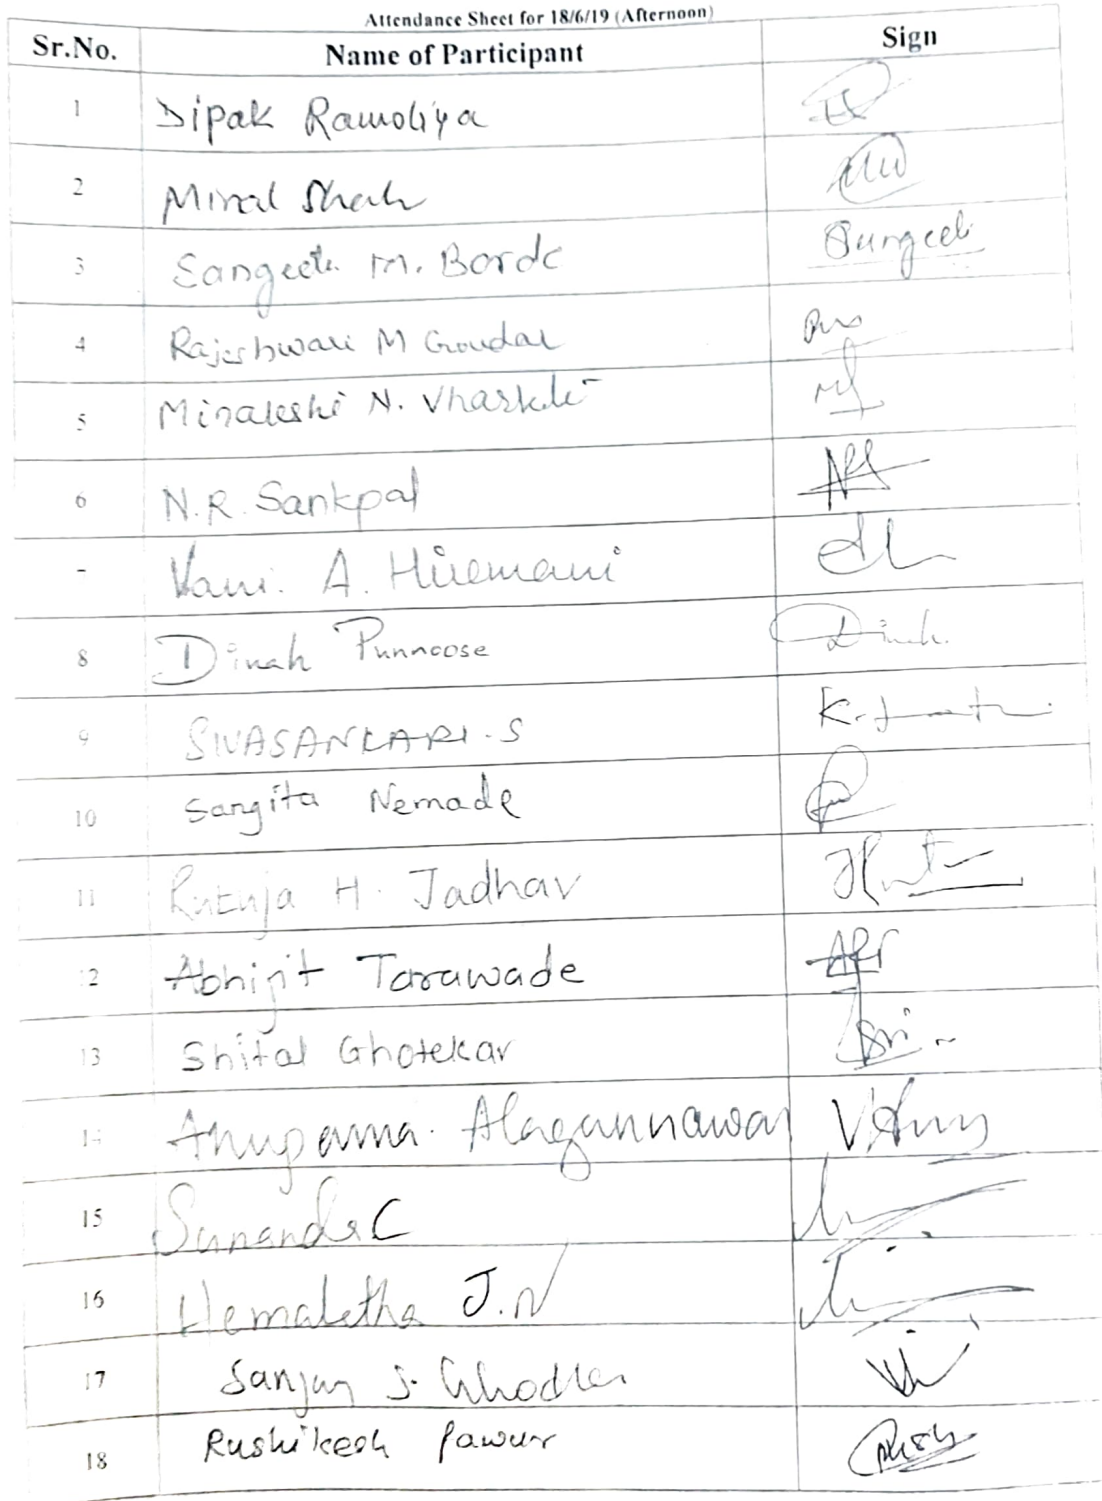 Attendance Sheet for 18/6/19 (Afternoon)
Sr.No. Name of Participant Sign
1 Dipak Ramoliya
2 Miral Shah
3 Sangeeta M. Borde Sangeeta
4 Rajeshwari M Goudar
5 Minakshi N.
6 N.R. Sankpal
Vani. A. Hiremani
8 Dinah Punnoose Dinah.
9 SIVASANKARI.S
10 Sangita Nemade
11 Rutuja H. Jadhav
12 Abhijit Tarawade
13 Shital Ghotekar
14 Anupama. Alagannawar
15 Sunanda C
16 Hemalatha J.N
17 Sanjay S.
18 Rushikesh Pawar